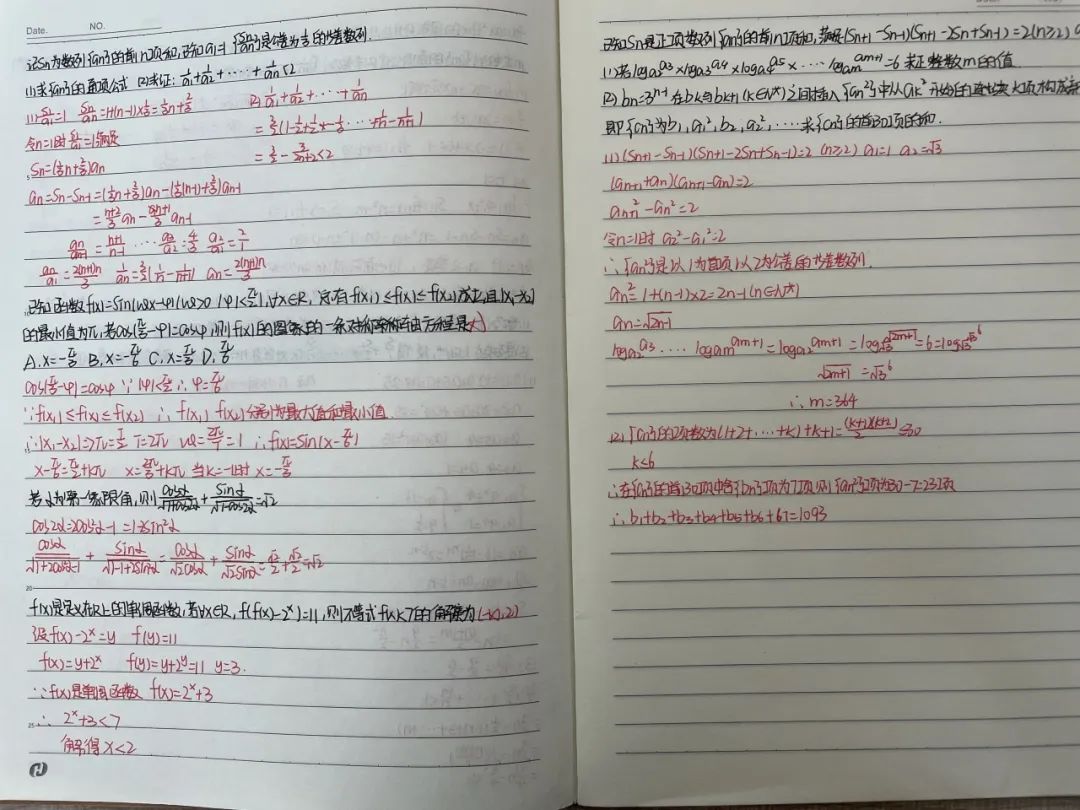 Date.
NO.
记Sn为数列{an}的前n项和,已知a1=1 {Sn/an}是公差为1/3的等差数列.
(1)求{an}的通项公式 (2)求证: 1/a1+1/a2+……+1/an<2
(1) S1/a1=1 Sn/an=1+(n-1)×1/3=1/3n+2/3 (2) 1/a1+1/a2+……+1/an
令n=1时 S1/a1=1满足 =3/2(1-1/2+1/2-1/3……+1/n-1/n+1)
Sn=(1/3n+2/3)an
an=Sn-Sn-1=(1/3n+2/3)an-(1/3(n-1)+2/3)an-1
an/an-1=n+1/n-1 …… a3/a2=4/2 a2/a1=
已知函数f(x)=sin(ωx-φ)(ω>0 |φ|<π/2),∀x∈R, 总有f(x1)≤f(x)≤f(x2)成立,且|x1-x2|
的最小值为π,若cos(π/3-φ)=cosφ,则f(x)的图象的一条对称轴方程是(A)
A.x=-π/3 B.x=-π/6 C.x=π/3 D.π/6
cos(π/3-φ)=cosφ ∵|φ|<π/2 ∴φ=π/6
∵f(x1)≤f(x)≤f(x2) ∴f(x1) f(x2)分别为最大值和最小值
∴|x1-x2|⇒π=T/2 T=2π ω=2π/T=1 ∴f(x)=sin(x-π/6)
x-π/6=π/2+kπ x=2π/3+kπ 当k=-1时 x=-π/3
若α为第一象限角,则cosα/√1+cos2α+sinα/√1-cos2α=√2
cos2α=2cos²α-1=1-2sin²α
cosα/√1+2cos²α-1+sinα/√1-1+2sin²α=cosα/√2cosα+sinα/√2sinα=√2/2+√2/2=√2
20
f(x)是定义在R上的单调函数,若∀x∈R,f(f(x)-2^x)=11,则不等式f(x)<7的解集为(-∞,2)
设f(x)-2^x=y f(y)=11
f(x)=y+2^x f(y)=y+2^y=11 y=3.
∵f(x)是单调函数 f(x)=2^x+3
25
∴ 2^x+3<7
解得x<2
已知Sn是正项数列{an}的前n项和,满足(Sn+1-Sn-1)(Sn+1-2Sn+Sn-1)=2(n≥2)
(1)若log a2 a3×log a3 a4×log a4 a5×……log am am+1=6 求正整数m的值
(2)bn=3^n-1 在bk与bk+1(k∈N*)之间插入{an²}中从ak²开始的连续k项构成
即{cn}为b1,a1²,b2,a2²,……求{cn}的前30项的和.
(1)(Sn+1-Sn-1)(Sn+1-2Sn+Sn-1)=2 (n≥2) a1=1 a2=√3
(an+1+an)(an+1-an)=2
an+1²-an²=2
令n=1时 a2²-a1²=2
∴{an²}是以1为首项以2为公差的等差数列.
an²=1+(n-1)×2=2n-1(n∈N*)
an=√2n-1
log a2 a3……log am am+1=log a2 am+1=log√3 √2m+1=6=log√3 √3^6
√2m+1=√3^6
∴m=364
(2){cn}的项数为(1+2+……+k)+k+1=(k+1)(k+2)/2≤30
k≤6
∴在{cn}的前30项中含{bn}项为7项 则{an²}项为30-7=23项
∴b1+b2+b3+b4+b5+b6+b7=1093